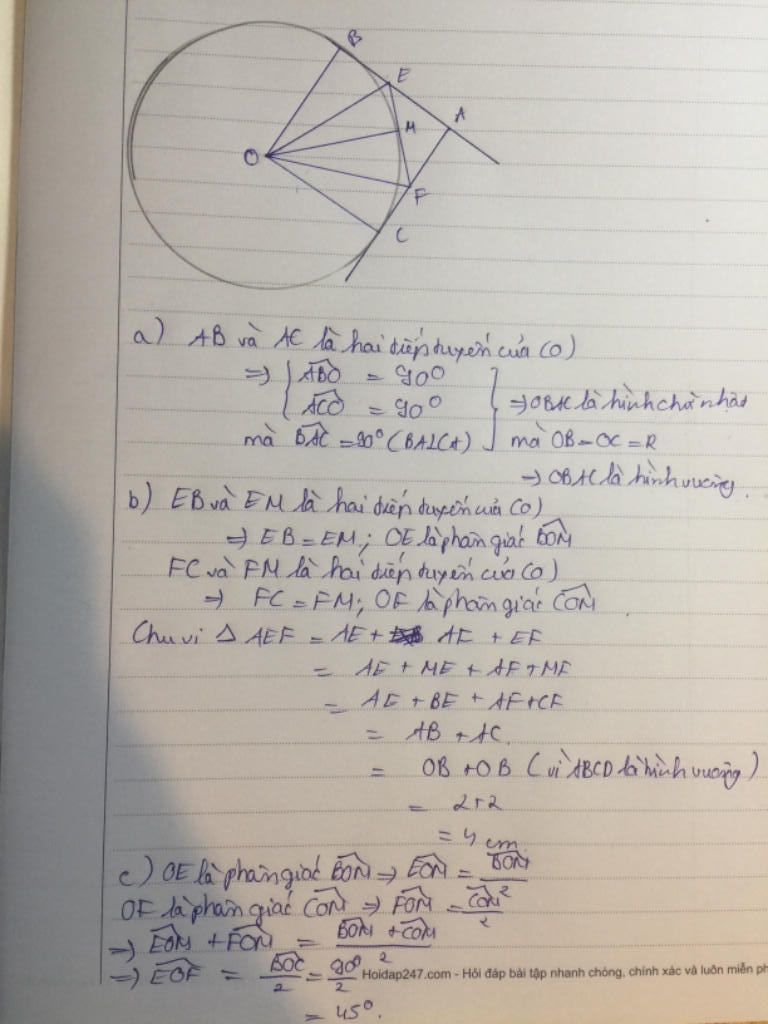 B
E
A
M
O
F
C
a) AB và AC là hai tiếp tuyến của (O)
=> { \widehat{ABO} = 90°
\widehat{ACO} = 90° } => OBAC là hình chữ nhật
mà \widehat{BAC} = 90° (BA⊥CA) mà OB = OC = R
=> OBAC là hình vuông.
b) EB và EM là hai tiếp tuyến của (O)
=> EB = EM; OE là phân giác \widehat{BOM}
FC và FM là hai tiếp tuyến của (O)
=> FC = FM; OF là phân giác \widehat{COM}.
Chu vi Δ AEF = AE + AF + EF
= AE + ME + AF + MF
= AE + BE + AF + CF
= AB + AC.
= OB + OB (vì ABCD là hình vuông)
= 2+2
= 4 cm
c) OE là phân giác \widehat{BOM} => \widehat{EOM} = \frac{\widehat{BOM}}{2}
OF là phân giác \widehat{COM} => \widehat{FOM} = \frac{\widehat{COM}}{2}
=> \widehat{EOM} + \widehat{FOM} = \frac{\widehat{BOM} + \widehat{COM}}{2}
=> \widehat{EOF} = \frac{\widehat{BOC}}{2} = \frac{90°}{2}
Hoidap247.com - Hỏi đáp bài tập nhanh chóng, chính xác và luôn miễn ph
= 45°.